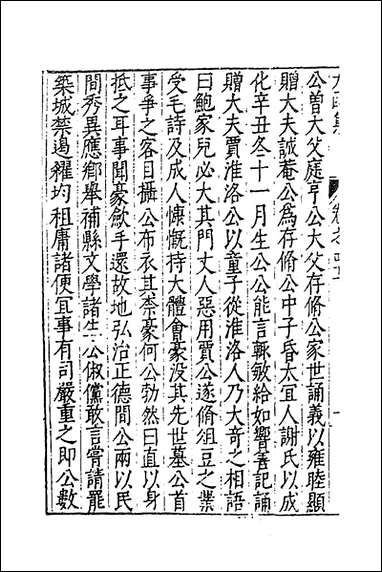 公曽大父庭亨公大父存脩公家世誦義以雍睦顯
贈大夫誠菴公爲存脩公中子昏太宜人謝氏以成
化辛丑冬十一月生公公能言輒敏給如響善記誦
贈大夫賈淮洛公以童子從淮洛人乃大奇之相語
曰鮑家兒必大其門丈人惡用賈公遂脩俎豆之業
受毛詩及成人慷慨持大體會豪没其先世墓公首
事爭之客目攝公布衣其柰豪何公勃然曰直以身
抵之耳事聞豪歛手還故地弘治正德間公兩以民
間秀異應鄉舉補縣文學諸生公俶儻敢言嘗請罷
築城禁遏糴均租庸諸便冝事有司嚴重之即公數